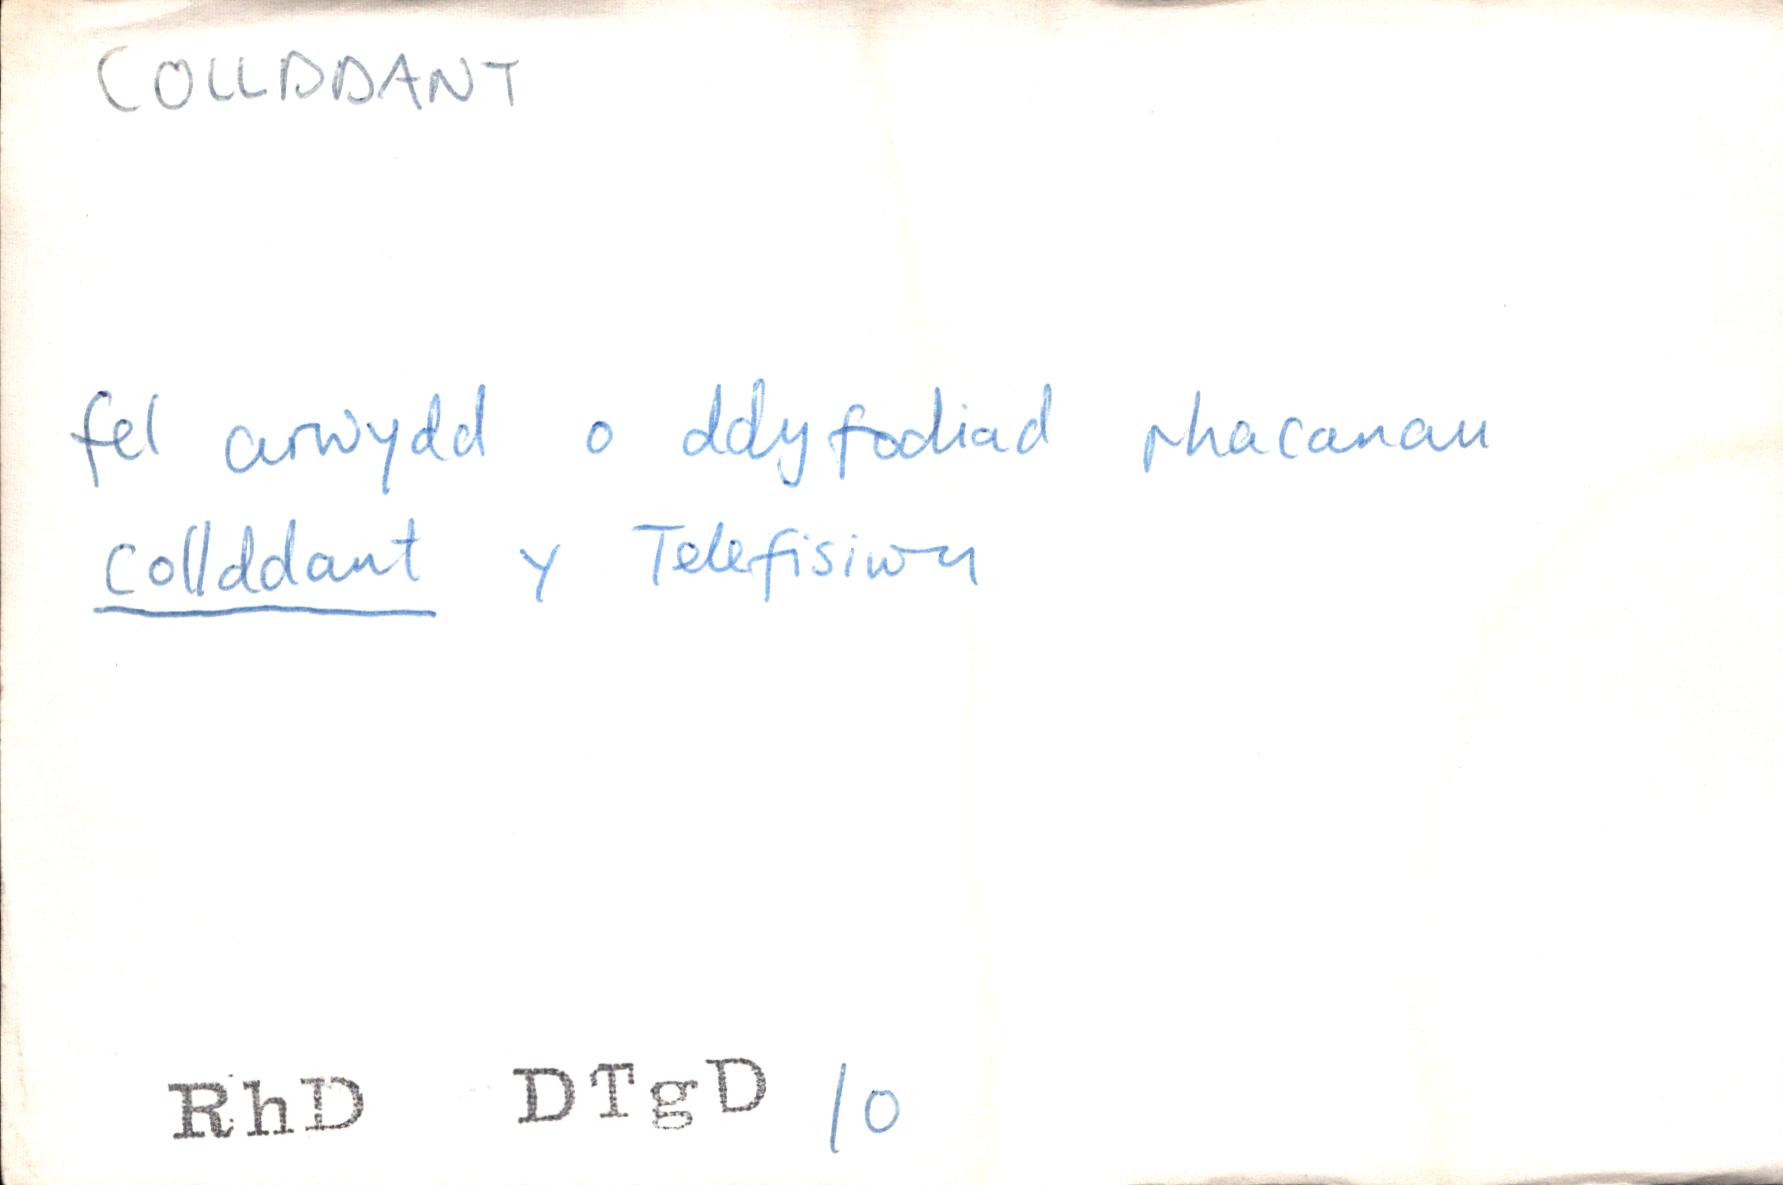 COLLDDANT
fel arwydd o ddyfodiad rhacanau
collddant y Telefisiwn
RhD DTgD 10